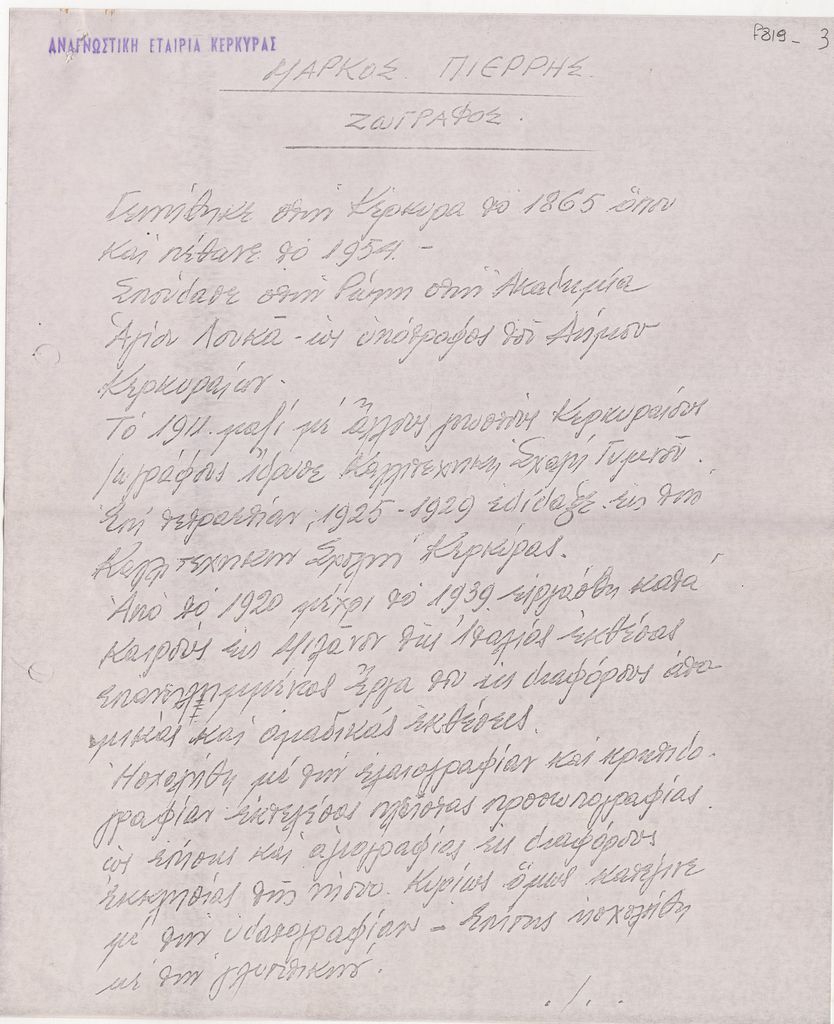 ΑΝΑΓΝΩΣΤΙΚΗ ΕΤΑΙΡΙΑ ΚΕΡΚΥΡΑΣ
F819_ 3
ΜΑΡΚΟΣ ΠΙΕΡΡΗΣ.
ΖΩΓΡΑΦΟΣ.
Γεννήθηκε στην Κέρκυρα τό 1865 όπου
καί πέθανε τό 1954. –
Σπούδασε στην Ρώμη στην Ακαδημία
Αγίου Λουκά - ως υπότροφος τού Δήμου
Κερκυραίων.
Τό 1911 μαζί μέ άλλους γνωστούς Κερκυραίους
ζωγράφους ίδρυσε Καλλιτεχνική Σχολή Γυμνού.
Επί τετραετίαν, 1925-1929 εδίδαξε εις την
Καλλιτεχνικήν Σχολήν Κερκύρας.
Από τό 1920 μέχρι τό 1939 ειργάσθη κατά
καιρούς εις Μιλάνον της Ιταλίας εκθέσας
επανειλημμένως Έργα του εις διαφόρους ατο-
μικάς καί ομαδικάς εκθέσεις.
Ησχολήθη μέ την ελαιογραφίαν και κρητιδο-
γραφίαν εκτελέσας πλείστας προσωπογραφίας.
ως επίσης καί αγιογραφίας εις διαφόρους
εκκλησίας της νήσου. Κυρίως όμως κατέγινε
μέ την υδατογραφίαν – Επίσης ησχολήθη
μέ την γλυπτικήν.
. / . .